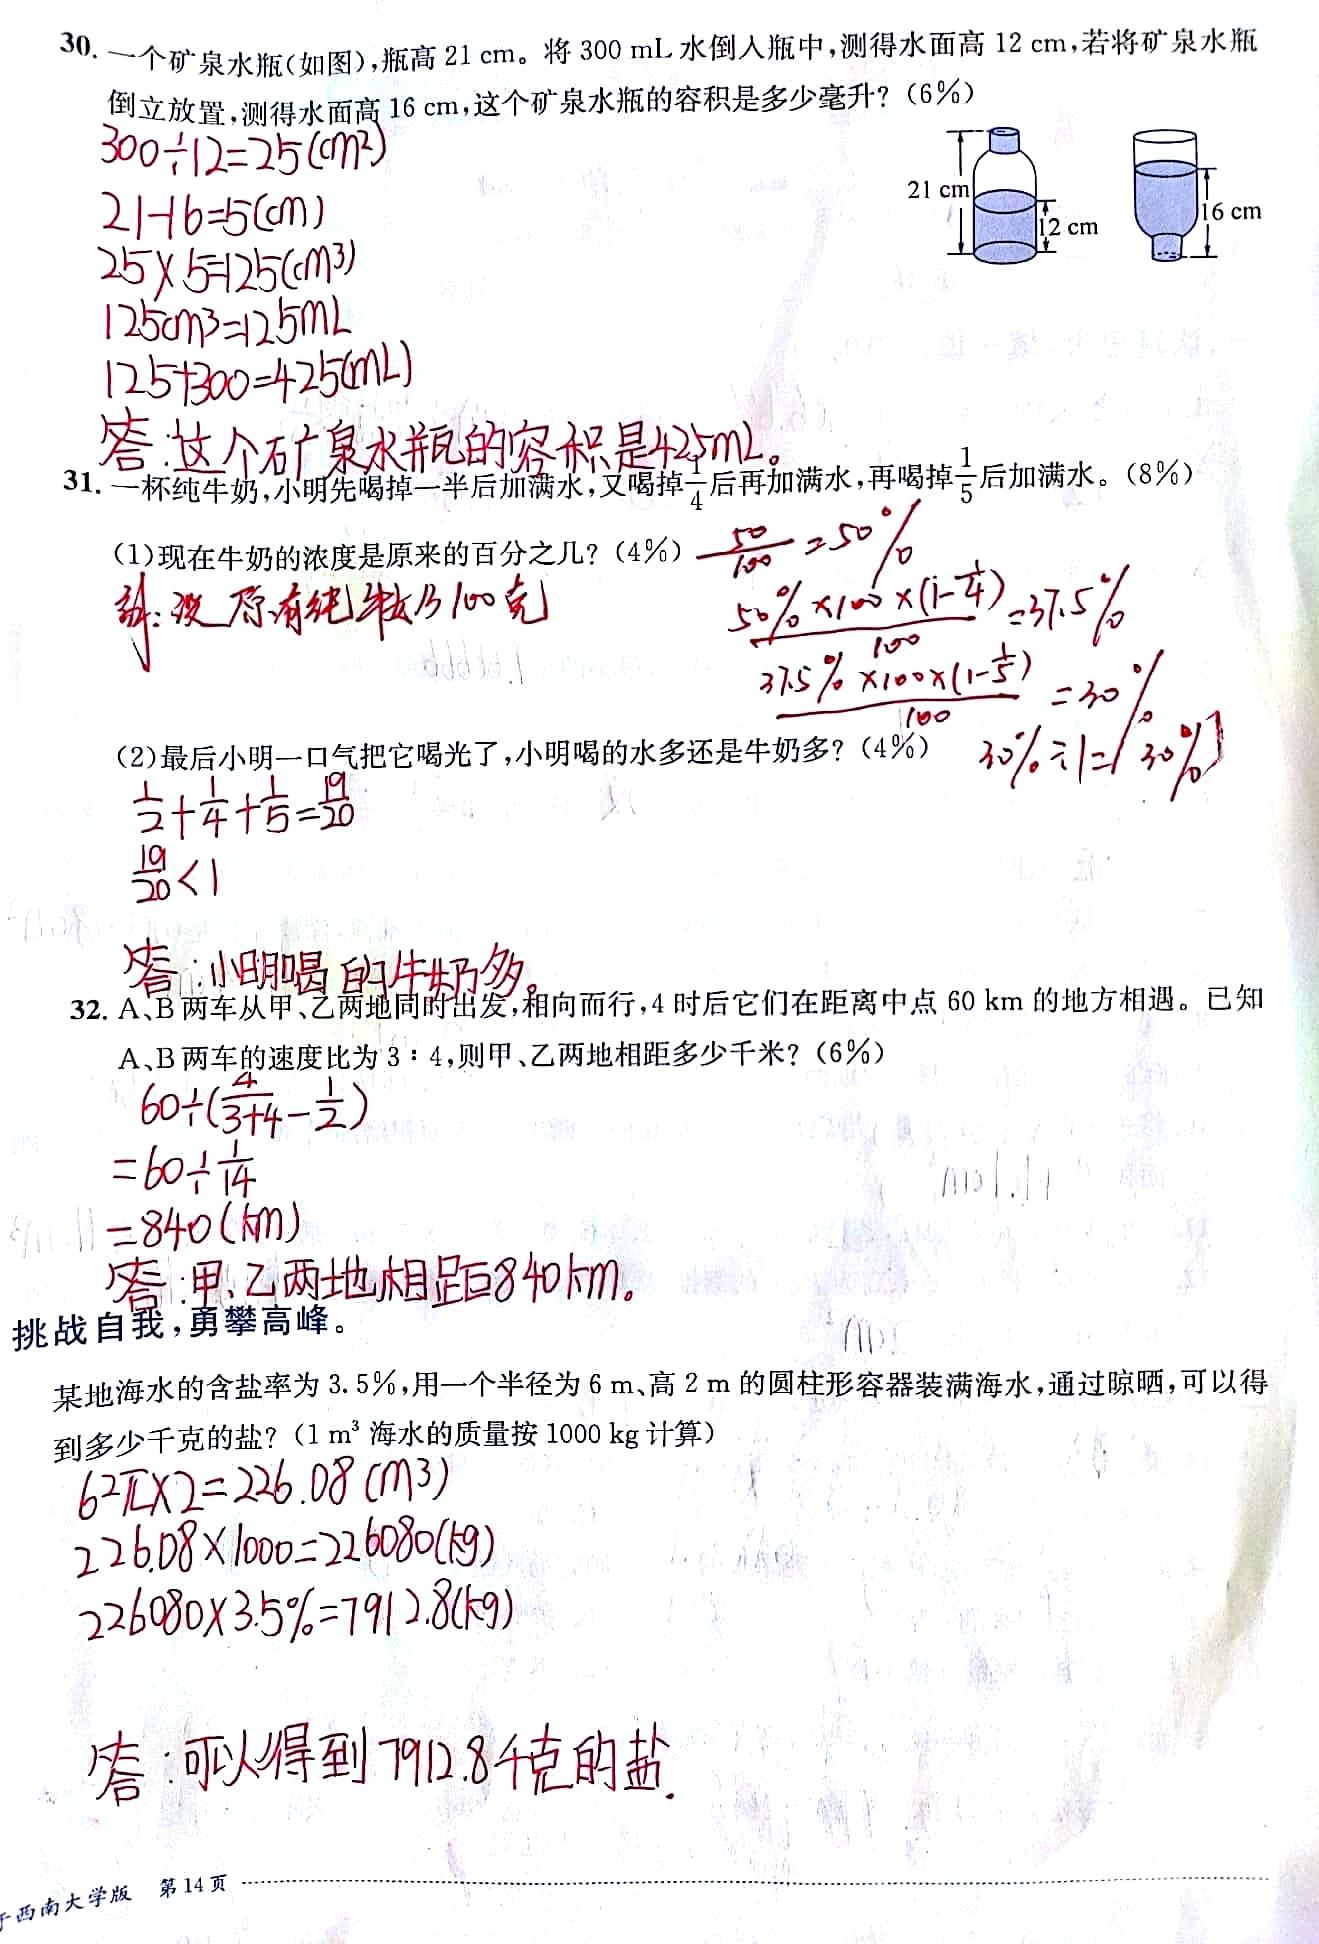 30. 一个矿泉水瓶(如图),瓶高 21 cm。将 300 mL 水倒入瓶中,测得水面高 12 cm,若将矿泉水瓶
倒立放置,测得水面高 16 cm,这个矿泉水瓶的容积是多少毫升?(6%)
300÷12=25(cm²)
21-16=5(cm)
25×5=125(cm³)
125cm³=125mL
125+300=425(mL)
答:这个矿泉水瓶的容积是425mL。
21 cm
12 cm
16 cm
31. 一杯纯牛奶,小明先喝掉一半后加满水,又喝掉1/4后再加满水,再喝掉1/5后加满水。(8%)
(1)现在牛奶的浓度是原来的百分之几?(4%)
50/100=50%
解:设原有纯牛奶为100克
50%×100×(1-1/4)/100=37.5%
37.5%×100×(1-1/5)/100=30%
30%÷1=30%
(2)最后小明一口气把它喝光了,小明喝的水多还是牛奶多?(4%)
1/2+1/4+1/5=19/20
19/20<1
答:小明喝的牛奶多。
32. A、B两车从甲、乙两地同时出发,相向而行,4 时后它们在距离中点 60 km 的地方相遇。已知
A、B两车的速度比为 3∶4,则甲、乙两地相距多少千米?(6%)
60÷(4/3+4-1/2)
=60÷1/14
=840(km)
答:甲、乙两地相距840km。
挑战自我,勇攀高峰。
某地海水的含盐率为 3.5%,用一个半径为 6 m、高 2 m 的圆柱形容器装满海水,通过晾晒,可以得
到多少千克的盐?(1 m³ 海水的质量按 1000 kg 计算)
6²π×2=226.08(m³)
226.08×1000=226080(kg)
226080×3.5%=7912.8(kg)
答:可以得到7912.8千克的盐.
西南大学版 第14页